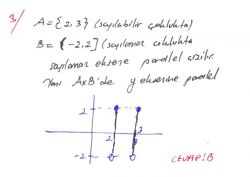 3/ A = {2,3} (sayılabilir çoklukta)
B = (-2,2] (sayılamaz çoklukta
sayılamaz eksene paralel çizilir.
Yani AxB'de y eksenine paralel
2
2 3
-2
CEVAP:B